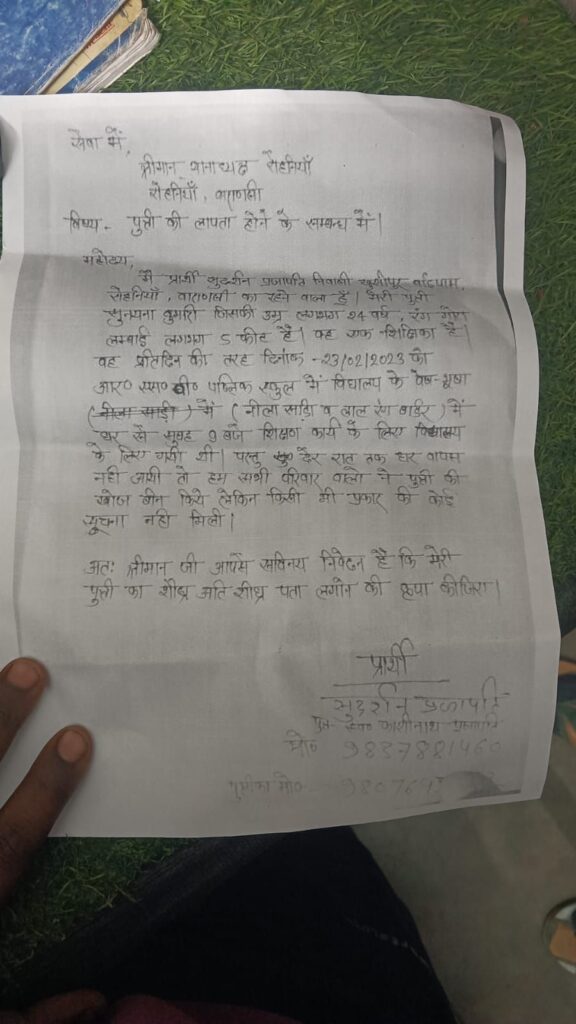 सेवा में,
श्रीमान थानाध्यक्ष रोहनियाँ
रोहनियाँ, वाराणसी
विषय - पुत्री की लापता होने के सम्बन्ध में।
महोदय,
मै प्रार्थी सुदर्शन प्रजापति निवासी
रोहनियाँ, वाराणसी का रहने वाला हूँ। मेरी पुत्री
सुनयना कुमारी जिसकी उम्र लगभग 24 वर्ष, रंग गोरा
लम्बाई लगभग 5 फीट है। वह एक शिक्षिका है।
वह प्रतिदिन की तरह दिनांक - 23/02/2023 को
आर० एस० वी० पब्लिक स्कूल में विद्यालय के वेष-भूषा
(नीला साड़ी) में (नीला साड़ी व लाल रंग बार्डर) में
घर से सुबह 9 बजे शिक्षण कार्य के लिए विद्यालय
के लिए गयी थी। परन्तु देर रात तक घर वापस
नही आयी तो हम सभी परिवार वालो ने पुत्री की
खोज बीन किये लेकिन किसी भी प्रकार की कोई
सूचना नही मिली।
अतः श्रीमान जी आपसे सविनय निवेदन है कि मेरी
पुत्री का शीघ्र अति शीघ्र पता लगाने की कृपा कीजिए।
प्रार्थी
सुदर्शन प्रजापति
पुत्र स्व० काशीनाथ प्रजापति
मो० 9837881460
मो० - 980769